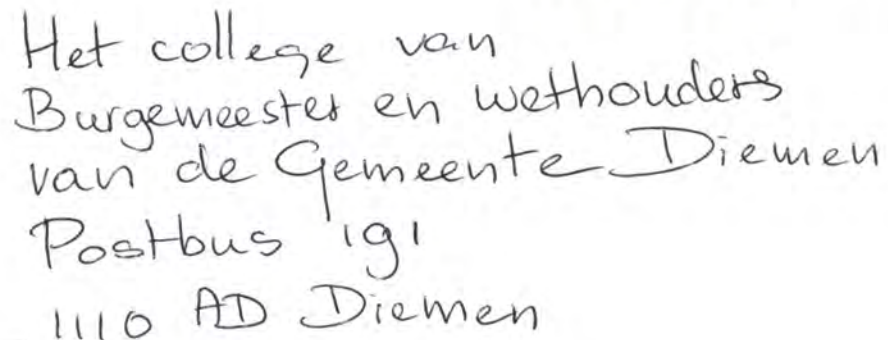 Het college van
Burgemeester en wethouders
van de Gemeente Diemen
Postbus 191
1110 AD Diemen